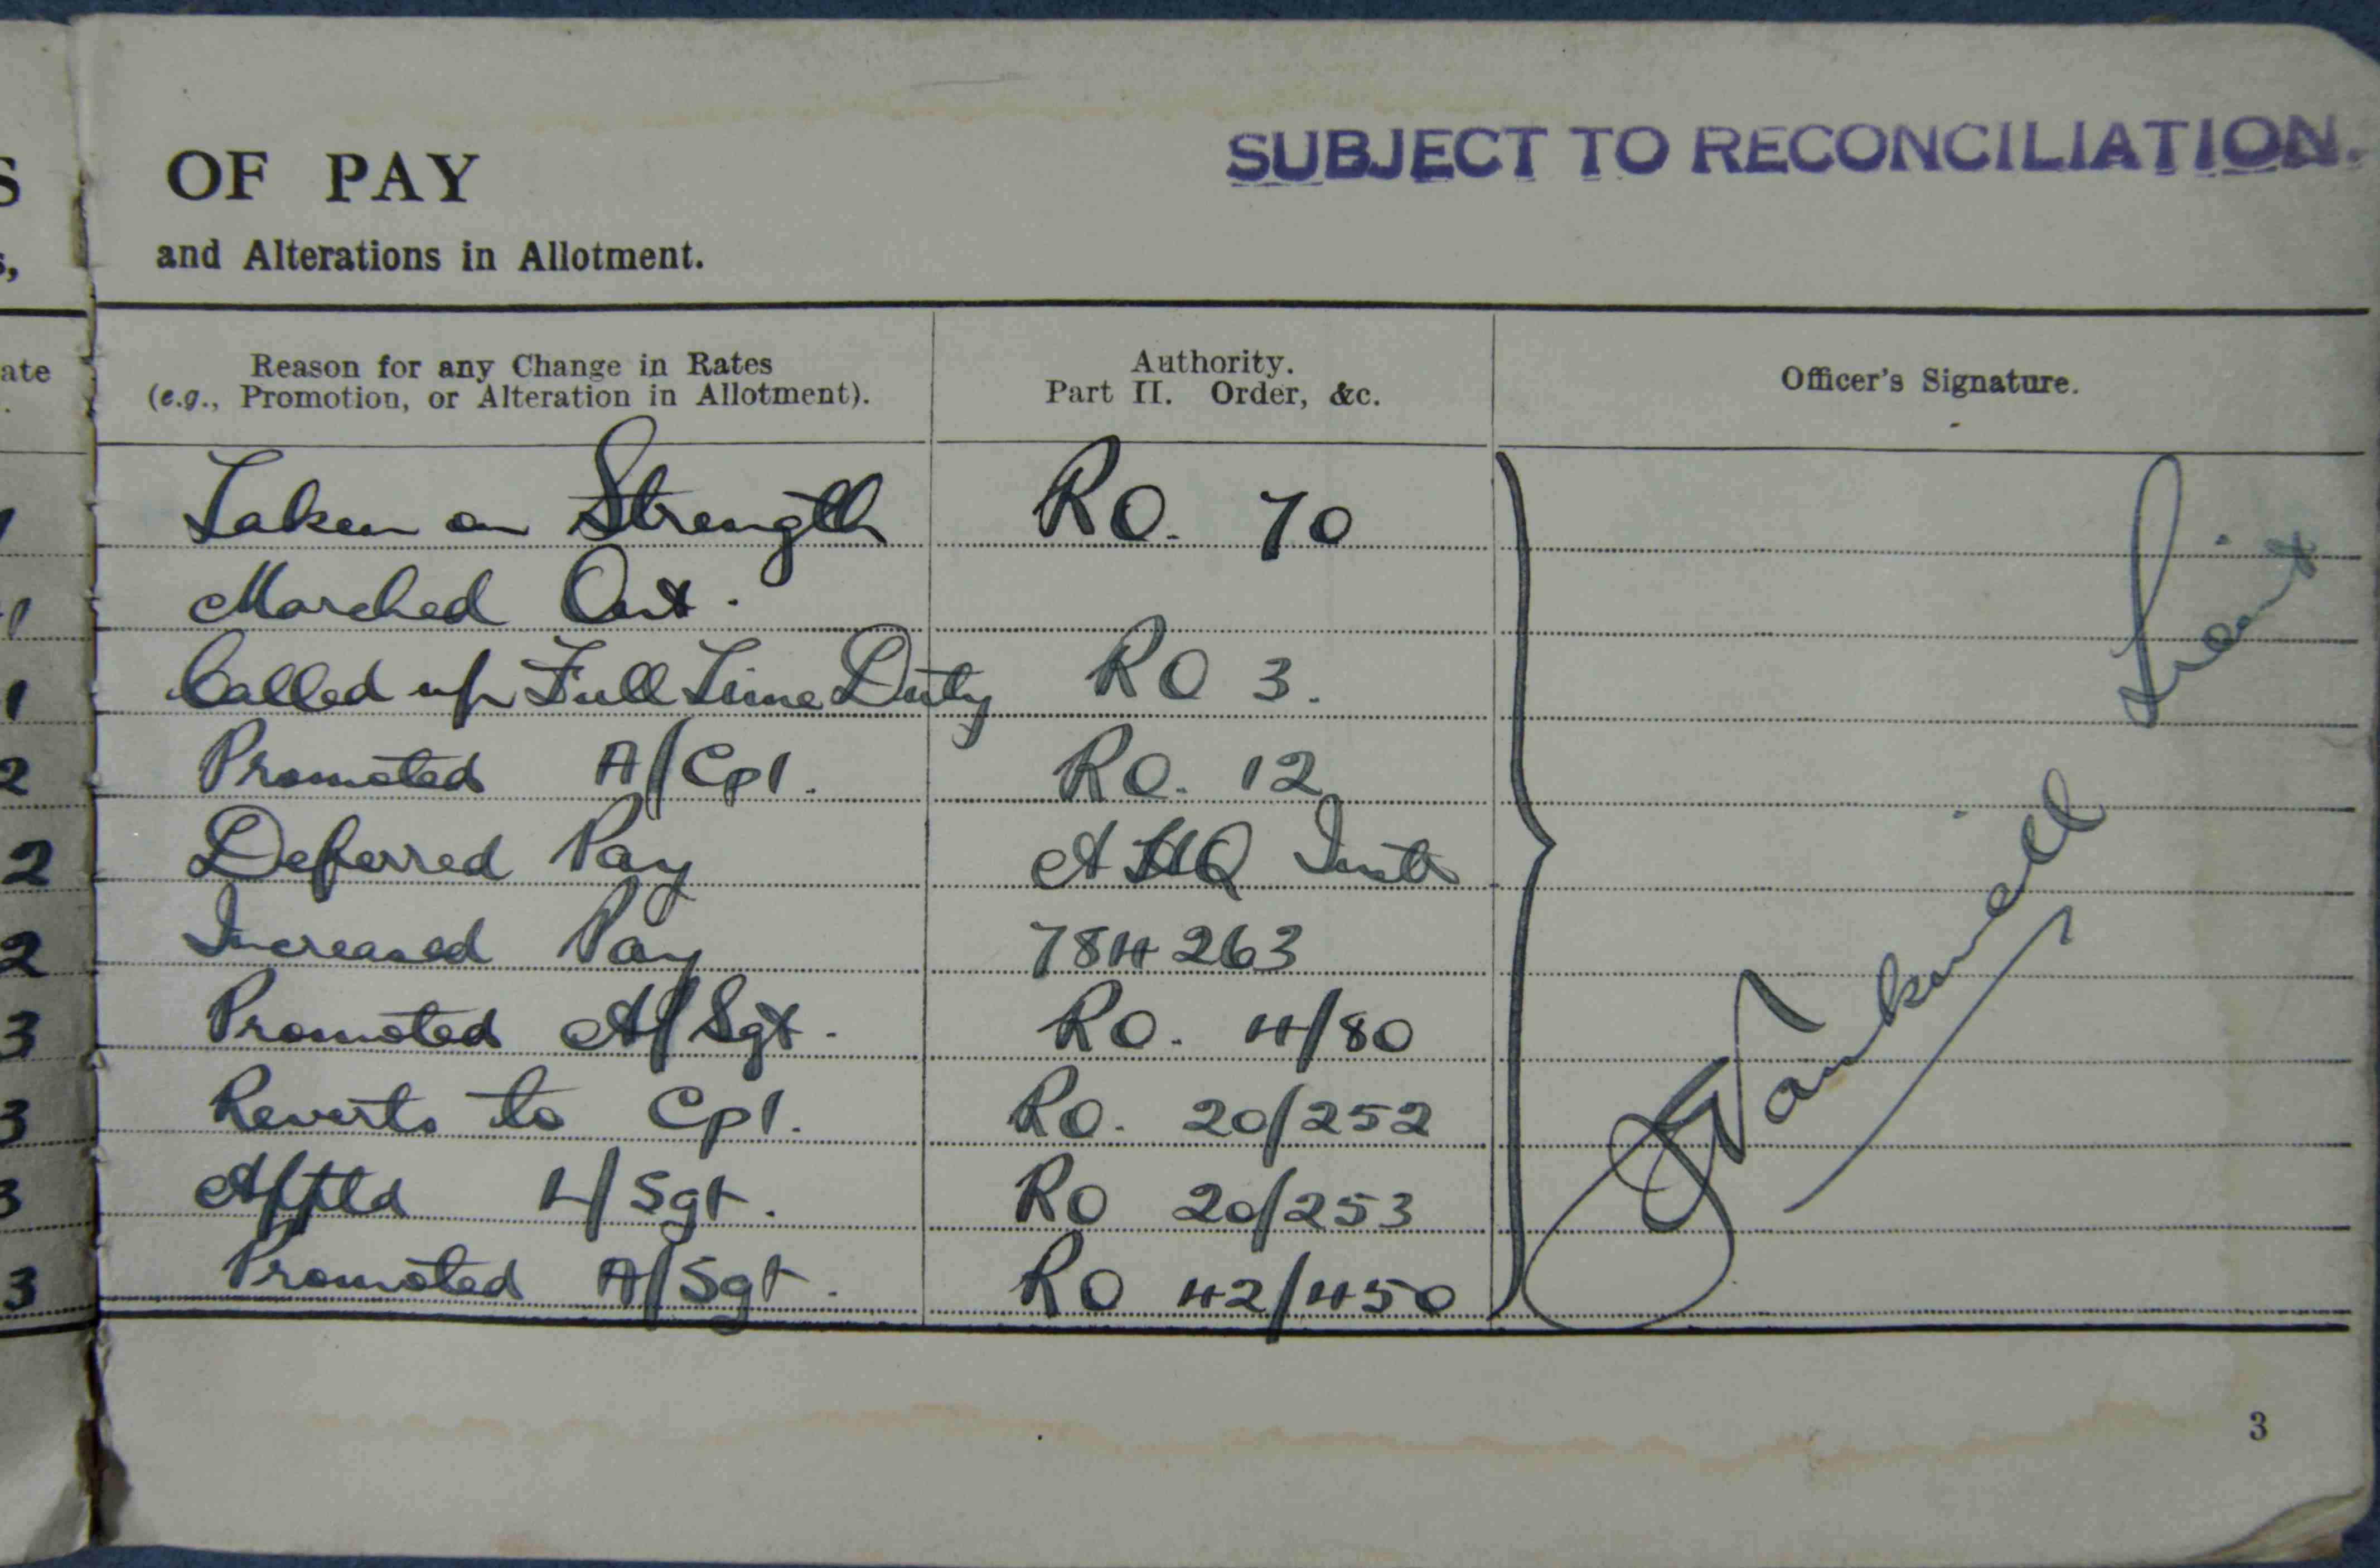 S OF PAY SUBJECT TO RECONCILIATION.
s, and Alterations in Allotment.
ate Reason for any Change in Rates Authority. Officer's Signature.
(e.g., Promotion, or Alteration in Allotment). Part II. Order, &c.
1 Taken on Strength RO. 70
1 Marched Out.
1 Called up Full Time Duty RO 3.
2 Promoted A/Cpl. RO. 12
2 Deferred Pay AHQ Insts
2 Increased Pay 784263
3 Promoted A/Sgt. RO. 4/80
3 Reverts to Cpl. RO. 20/252
3 Apptd L/Sgt. RO 20/253
3 Promoted A/Sgt. RO 42/450
Lieut
3